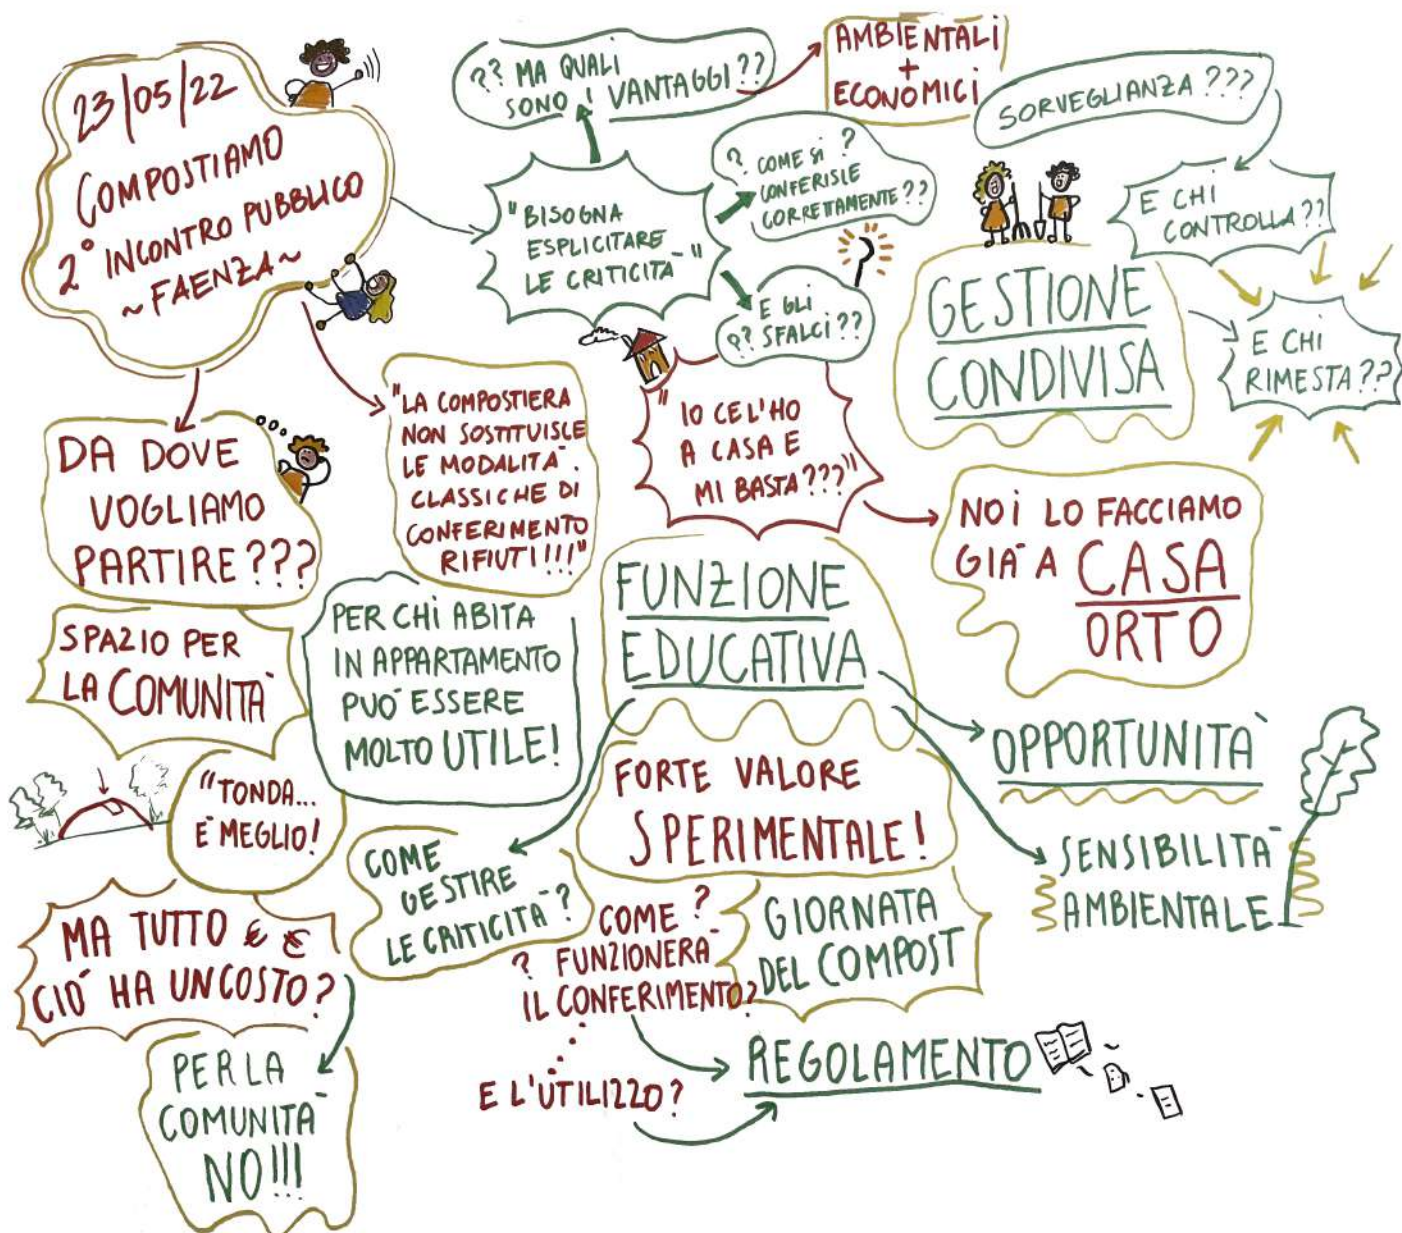 23/05/22
COMPOSTIAMO
2° INCONTRO PUBBLICO
~ FAENZA ~
?? MA QUALI
SONO I VANTAGGI ??
AMBIENTALI
+
ECONOMICI
SORVEGLIANZA ???
"BISOGNA
ESPLICITARE
LE CRITICITÀ"
? COME SI ?
CONFERISCE
CORRETTAMENTE ??
E GLI
?? SFALCI ??
E CHI
CONTROLLA??
GESTIONE
CONDIVISA
E CHI
RIMESTA??
DA DOVE
VOGLIAMO
PARTIRE???
"LA COMPOSTIERA
NON SOSTITUISCE
LE MODALITÀ
CLASSICHE DI
CONFERIMENTO
RIFIUTI!!!"
"IO CEL'HO
A CASA E
MI BASTA???"
NOI LO FACCIAMO
GIÀ A CASA
ORTO
SPAZIO PER
LA COMUNITÀ
PER CHI ABITA
IN APPARTAMENTO
PUÒ ESSERE
MOLTO UTILE!
FUNZIONE
EDUCATIVA
OPPORTUNITÀ
SENSIBILITÀ
AMBIENTALE
"TONDA...
È MEGLIO!
FORTE VALORE
SPERIMENTALE!
COME
GESTIRE
LE CRITICITÀ?
MA TUTTO € €
CIÒ HA UN COSTO?
PER LA
COMUNITÀ
NO!!!
COME ?
? FUNZIONERÀ
IL CONFERIMENTO?
E L'UTILIZZO?
GIORNATA
DEL COMPOST
REGOLAMENTO